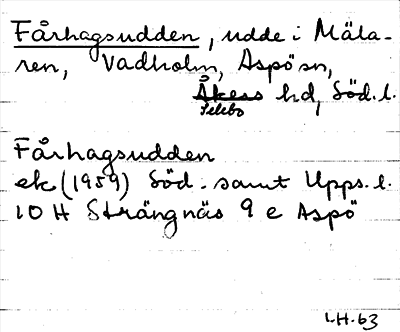 Fårhagsudden, udde i Mäla-
ren, Vadholm, Aspö sn,
Åkers hd, Söd. l.
Selebo
Fårhagsudden
ek (1959) Söd. samt Upps. l.
10 H Strängnäs 9 e Aspö
LH. 63